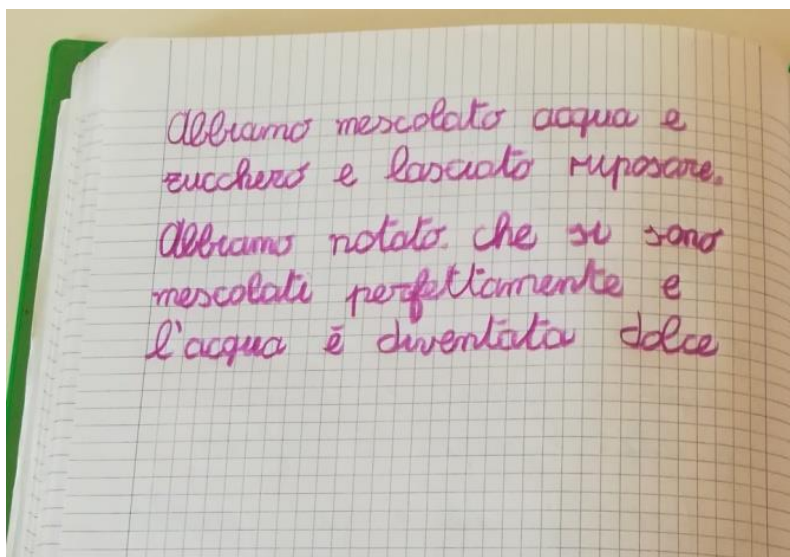 Abbiamo mescolato acqua e
zucchero e lasciato riposare.
Abbiamo notato che si sono
mescolati perfettamente e
l'acqua è diventata dolce